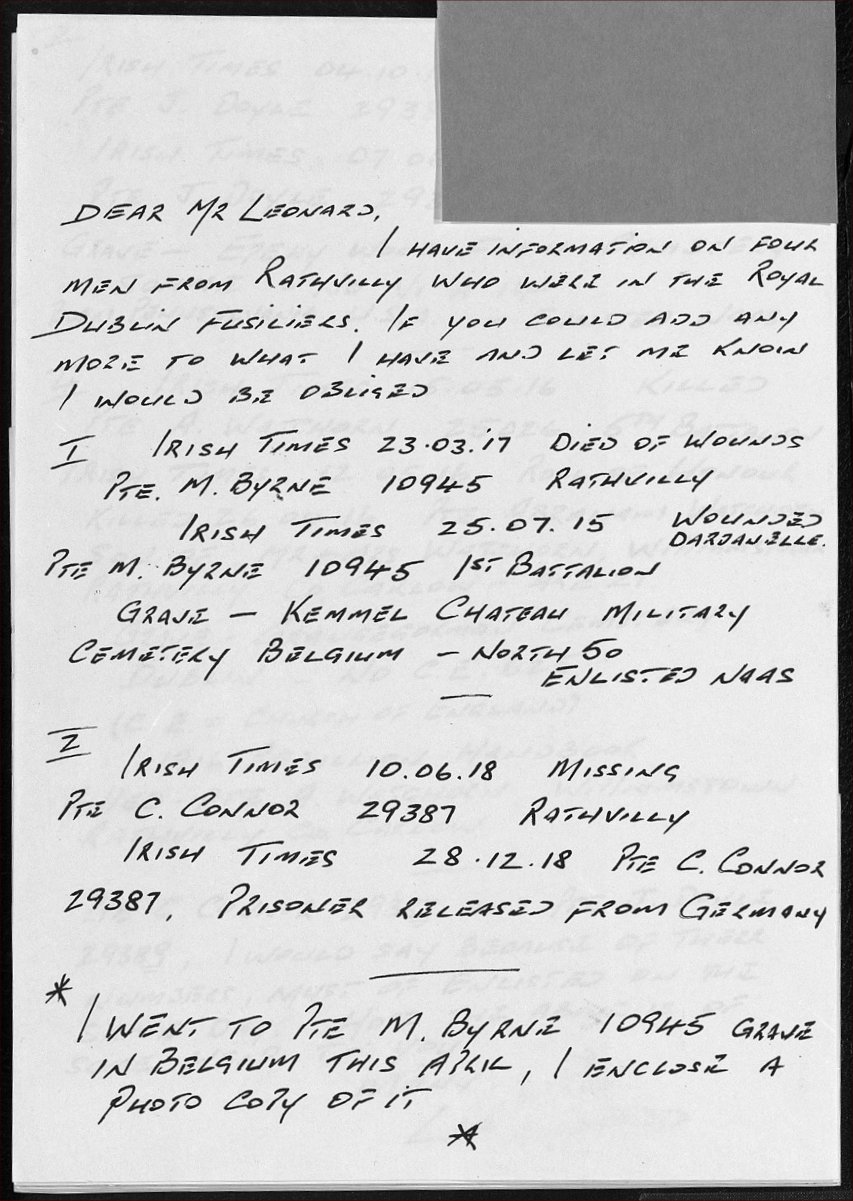 DEAR MR LEONARD,
I HAVE INFORMATION ON FOUR
MEN FROM RATHVILLY WHO WERE IN THE ROYAL
DUBLIN FUSILIERS. IF YOU COULD ADD ANY
MORE TO WHAT I HAVE AND LET ME KNOW
I WOULD BE OBLIGED
I IRISH TIMES 23.03.17 DIED OF WOUNDS
PTE. M. BYRNE 10945 RATHVILLY
IRISH TIMES 25.07.15 WOUNDED
DARDANELLE.
PTE M. BYRNE 10945 1ST BATTALION
GRAVE — KEMMEL CHATEAU MILITARY
CEMETERY BELGIUM — NORTH 50
ENLISTED NAAS
2
IRISH TIMES 10.06.18 MISSING
PTE C. CONNOR 29387 RATHVILLY
IRISH TIMES 28.12.18 PTE C. CONNOR
29387, PRISONER RELEASED FROM GERMANY
*
I WENT TO PTE M. BYRNE 10945 GRAVE
IN BELGIUM THIS APRIL, I ENCLOSE A
PHOTO COPY OF IT
*